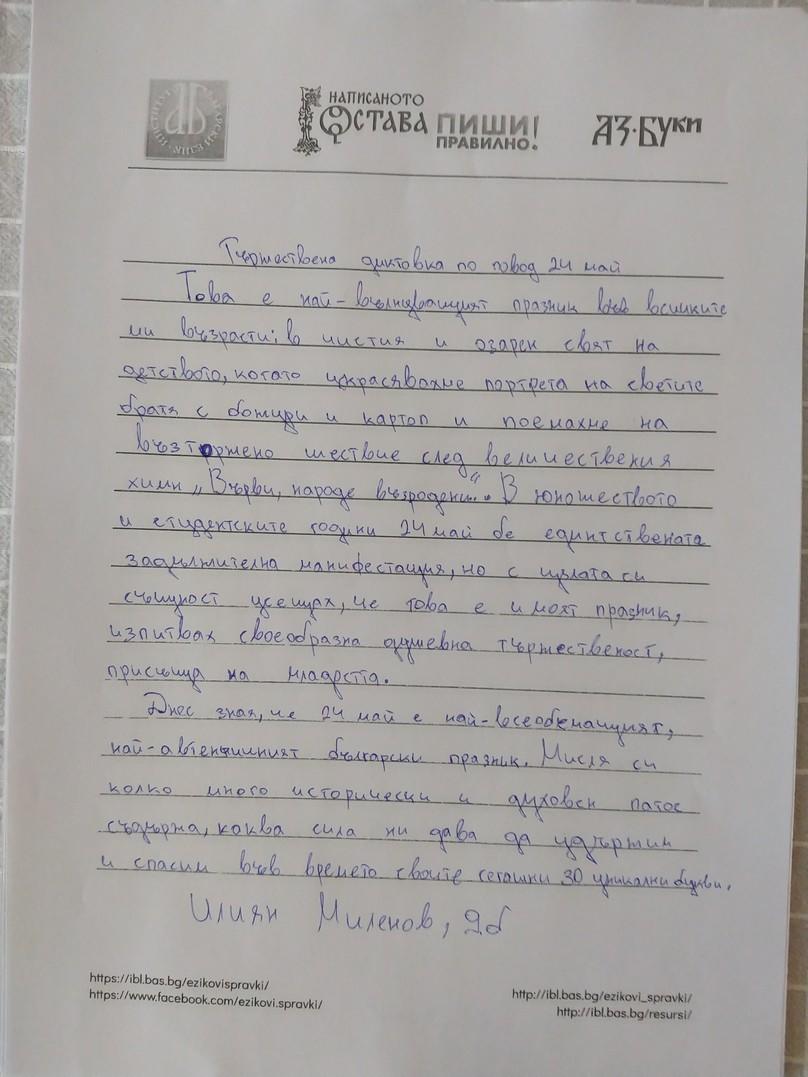 НАПИСАНОТО
ОСТАВА ПИШИ!
ПРАВИЛНО.
АЗ·БУКИ
Тържествена диктовка по повод 24 май
Това е най-вълнуващият празник във всичките
ми възрасти: в чистия и озарен свят на
детството, когато украсявахме портрета на светите
братя с божури и картоп и поемахме на
възторжено шествие след величествения
химн „Върви, народе възродени". В юношеството
и студентските години 24 май бе единтствената
задължителна манифестация, но с цялата си
същност усещах, че това е и моят празник,
изпитвах своеобразна душевна тържественост,
присъща на младостта.
Днес зная, че 24 май е най-всеобемащият,
най-автентичният български празник. Мисля си
колко много исторически и духовен патос
съдържа, каква сила ни дава да удържим
и спасим във времето своите сегашни 30 уникални букви.
Илиян Миленов, 9б
https://ibl.bas.bg/ezikovispravki/
https://www.facebook.com/ezikovi.spravki/
http://ibl.bas.bg/ezikovi_spravki/
http://ibl.bas.bg/resursi/